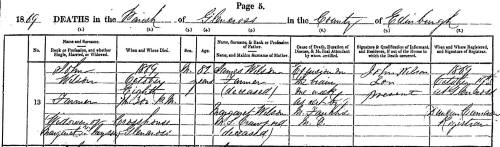 Page 5.
1869 DEATHS in the Parish of Glencross in the County of Edinburgh
Name and Surname.
Rank or Profession, and whether Single, Married, or Widowed.
When and Where Died.
Sex.
Age.
Name, Surname, & Rank or Profession of Father.
Name, and Maiden Surname of Mother.
Cause of Death, Duration of Disease, & Medical Attendant by whom certified.
Signature & Qualification of Informant, and Residence, if out of the House in which the Death occurred.
When and where Registered, and Signature of Registrar.
John
Wilson
Farmer
13
1869
October
Eighth
M.
87
years
James Wilson
Farmer
(deceased)
Margaret Wilson
M.S. Crawford
(deceased)
Effusion on
the brain
one week
As cert by
M.D.
John Wilson
Son
present
1869
October
at Glencross
Registrar
Widower of
Margaret
Crosshouse
Glencross